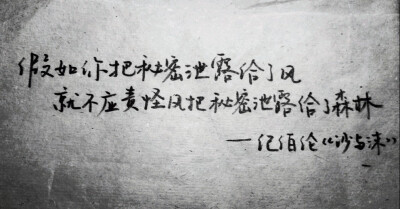 假如你把秘密泄露给了风
就不应责怪风把秘密泄露给了森林
——纪伯伦《沙与沫》